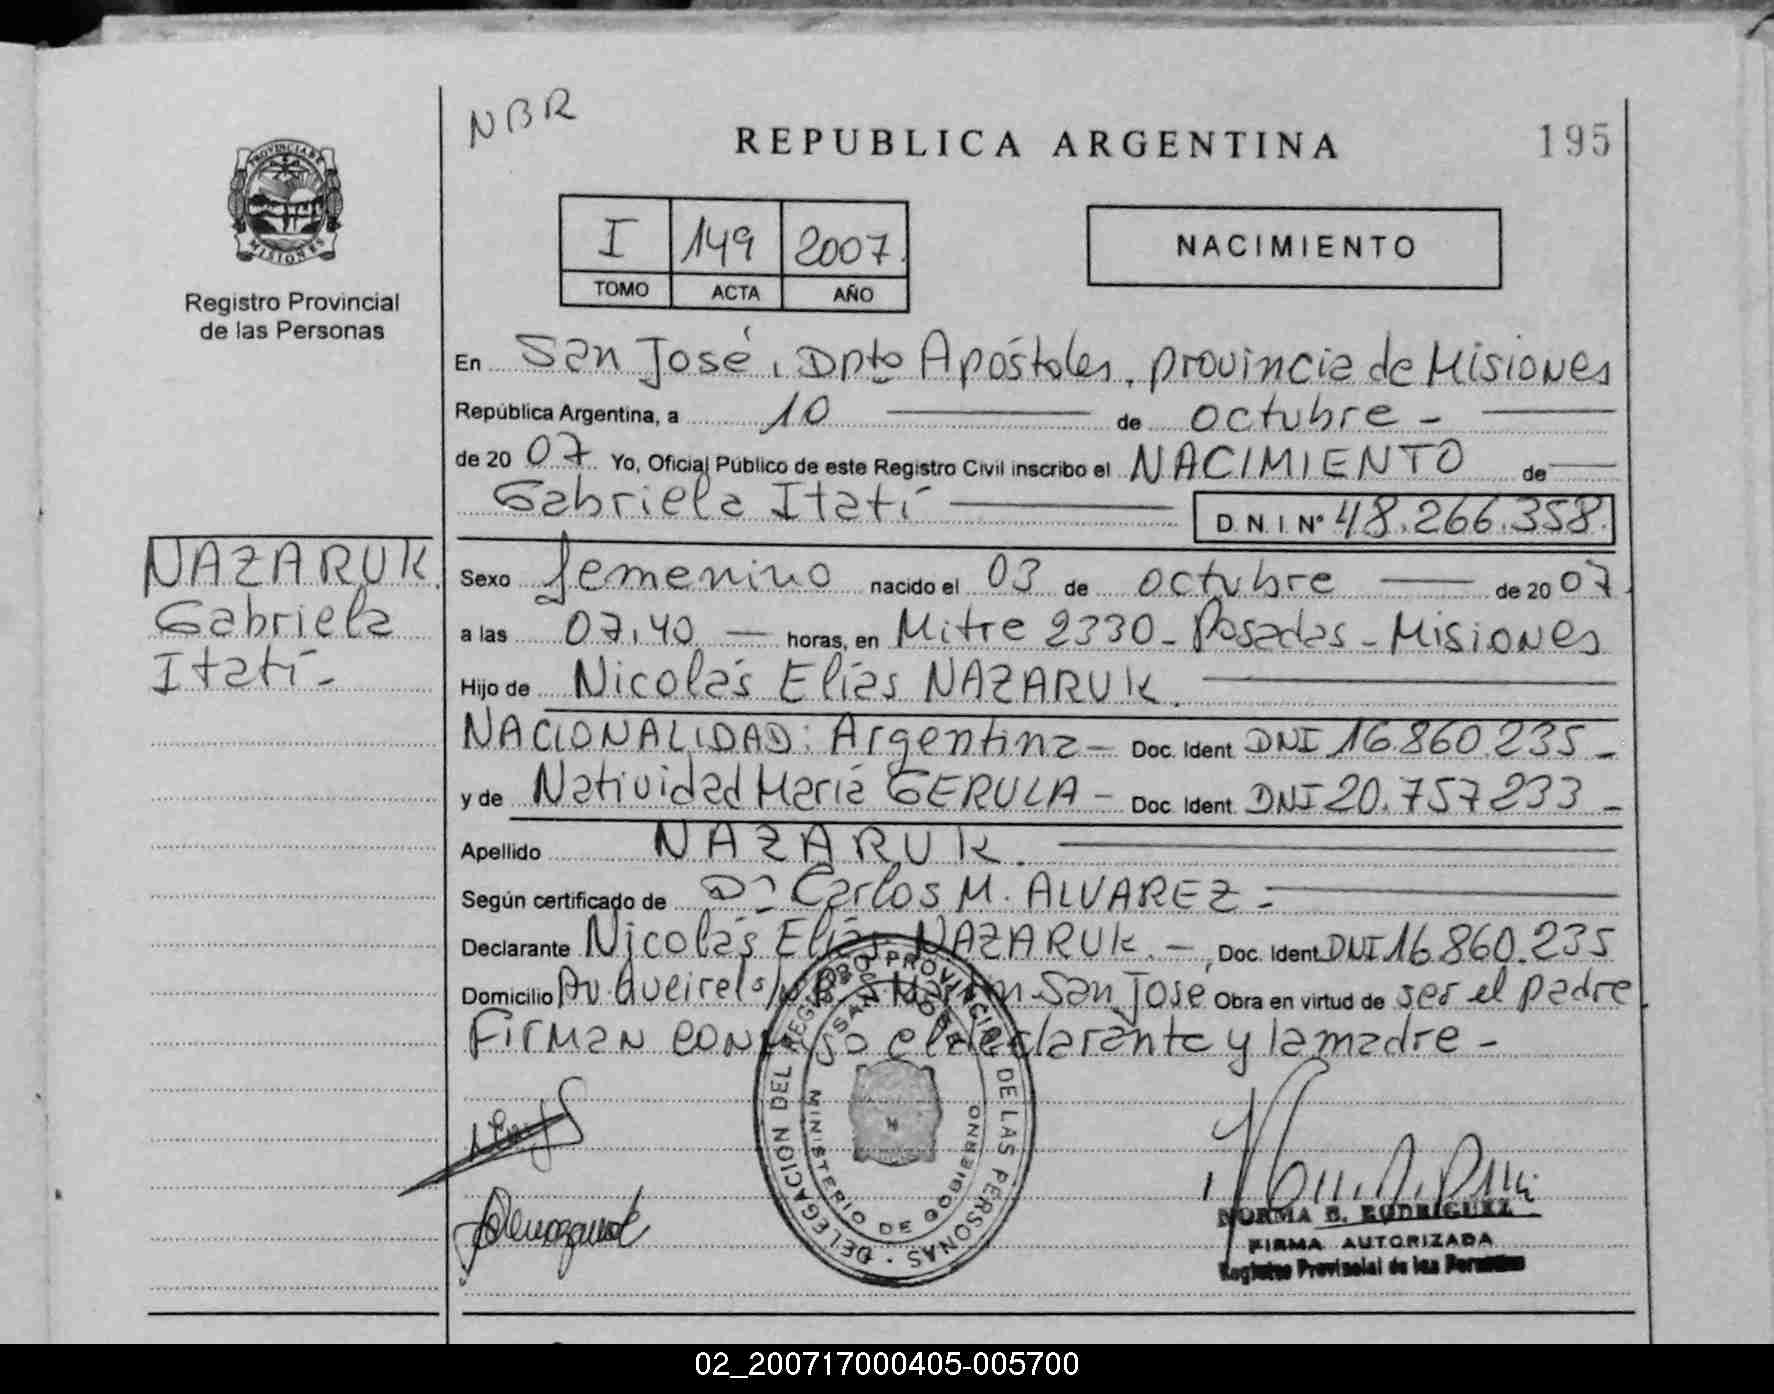 NBR
REPUBLICA ARGENTINA
195
PROVINCIA DE
MISIONES
Registro Provincial
de las Personas
I 149 2007.
TOMO ACTA AÑO
NACIMIENTO
En San José, Dpto Apóstoles, provincia de Misiones
República Argentina, a 10 de octubre -
de 20 07 Yo, Oficial Público de este Registro Civil inscribo el NACIMIENTO de
Gabriela Itatí D.N.I. Nº 48.266.358.
NAZARUK.
Gabriela
Itatí-
Sexo femenino nacido el 03 de octubre de 20 07.
a las 07,40 — horas, en Mitre 2330- Posadas - Misiones
Hijo de Nicolás Elías NAZARUK.
NACIONALIDAD: Argentina - Doc. Ident. DNI 16.860.235 -
y de Natividad María GERULA - Doc. Ident. DNI 20.757.233 -
Apellido NAZARUK.
Según certificado de Dr Carlos M. ALVAREZ -
Declarante Nicolás Elías NAZARUK. - Doc. Ident. DNI 16.860.235
Domicilio Av. Queirel s/n San José Obra en virtud de ser el padre.
Firman el declarante y la madre -
DELEGACION DEL REGISTRO PROVINCIAL DE LAS PERSONAS
SAN JOSE
MINISTERIO DE GOBIERNO
NORMA B. RODRIGUEZ
FIRMA AUTORIZADA
Registro Provincial de las Personas
02_200717000405-005700